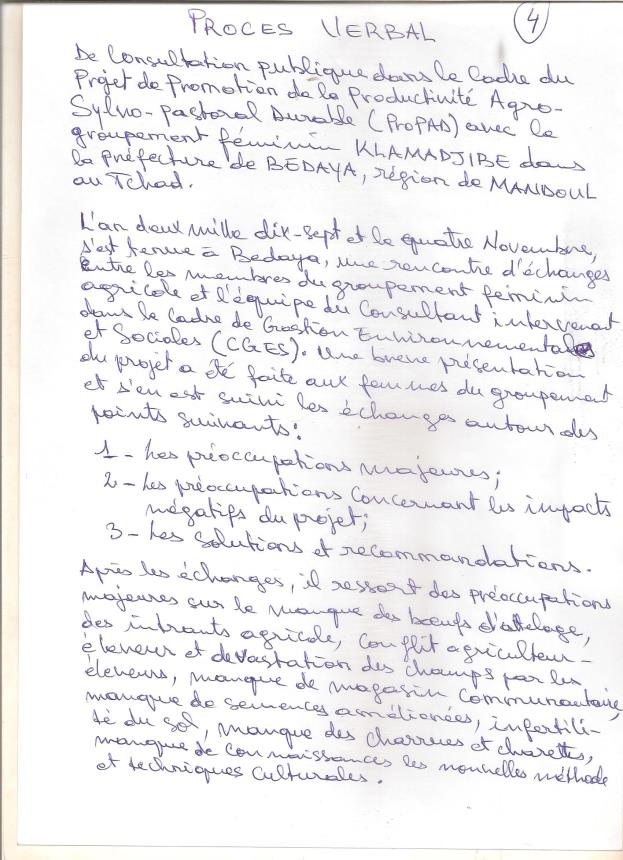 PROCES VERBAL
4
De Consultation publique dans le Cadre du
Projet de Promotion de la Productivité Agro-
Sylvo-pastoral Durable (ProPAD) avec le
groupement féminin KLAMADJIBE dans
la Préfecture de BEDAYA, région de MANDOUL
au Tchad.
L'an deux mille dix-sept et le quatre Novembre,
s'est tenue à Bedaya, une rencontre d'échanges
entre les membres du groupement féminin
agricole et l'équipe du Consultant intervenant
dans le Cadre de Gestion Environnementale
et Sociales (CGES). Une breve présentation
du projet a été faite aux femmes du groupement
et s'en est suivi les échanges autour des
points suivants:
1- Les préoccupations majeures;
2- Les préoccupations Concernant les impacts
négatifs du projet;
3- Les Solutions et recommandations.
Après les échanges, il ressort des préoccupations
majeures sur le manque des bœufs d'attelage,
des intrants agricole, Conflit agriculteur-
éleveur et devastation des champs par les
éleveurs, manque de magasin Communautaire,
manque de semences améliorées, infertili-
té du sol, manque des charrues et charettes,
manque de connaissances les nouvelles méthode
et techniques Culturales.